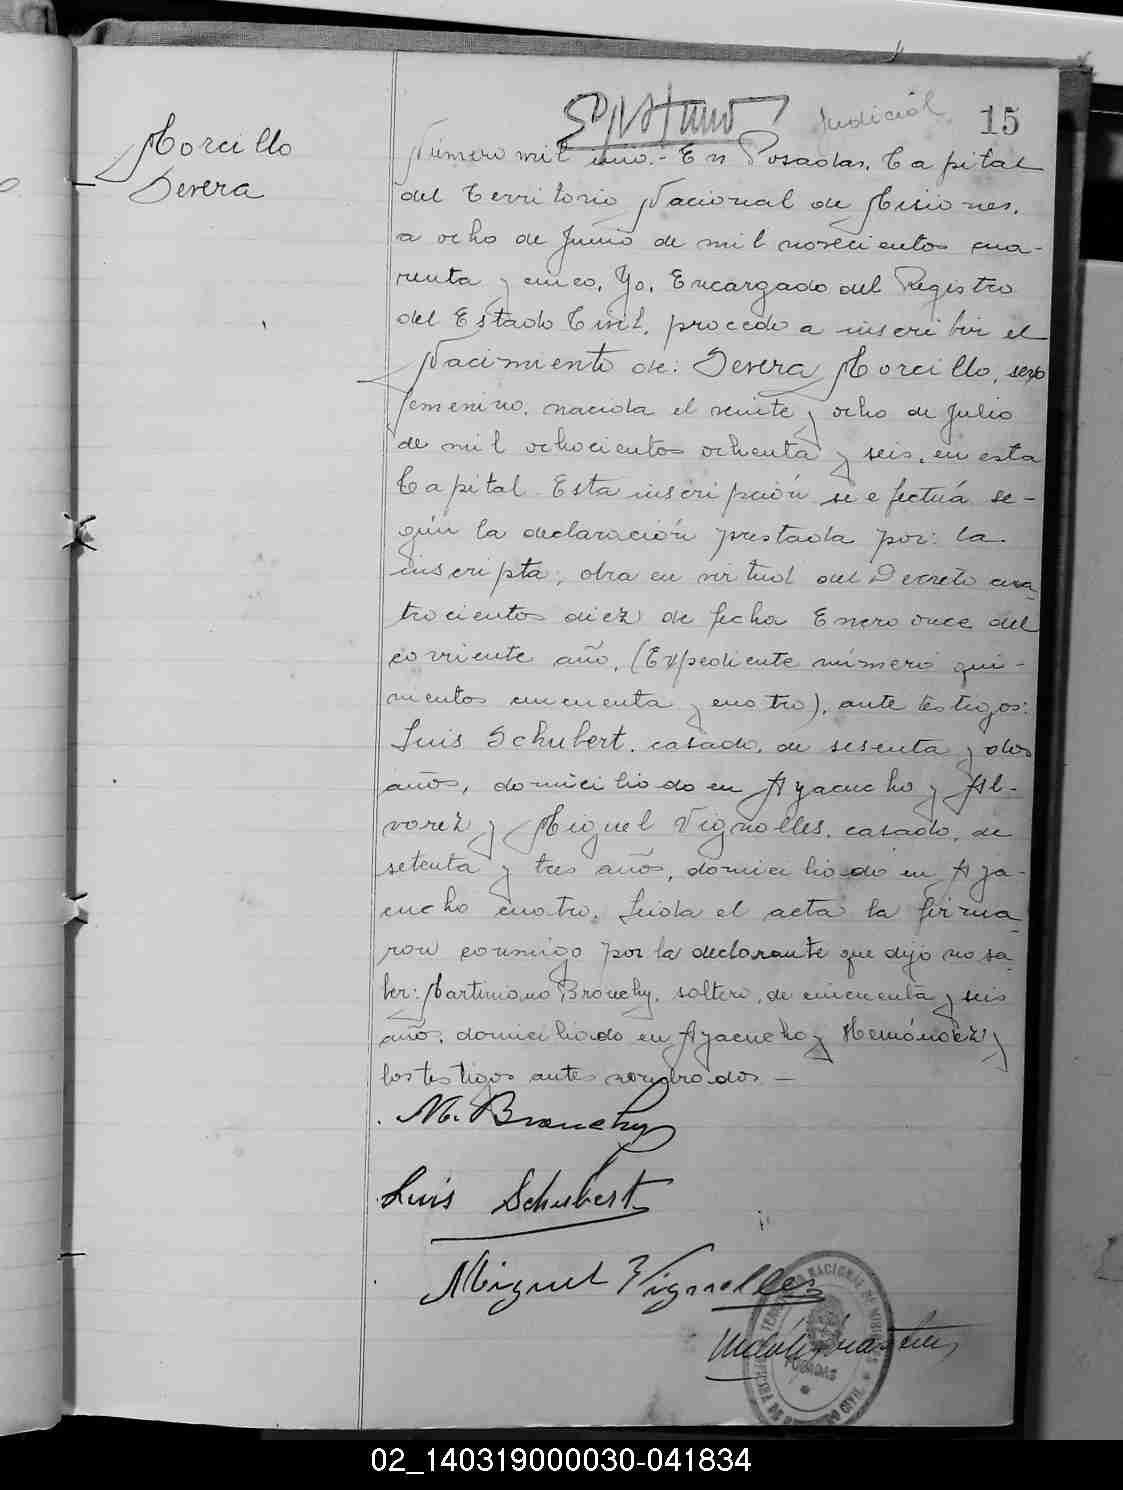 Judicial
15
Morcillo
Severa
Número mil uno.- En Posadas, Capital
del Territorio Nacional de Misiones,
a ocho de Junio de mil novecientos cua-
renta y cinco, Yo, Encargado del Registro
del Estado Civil, procedo a inscribir el
Nacimiento de: Severa Morcillo, sexo
femenino, nacida el veinte y ocho de Julio
de mil ochocientos ochenta y seis, en esta
Capital. Esta inscripción se efectúa se-
gún la declaración prestada por: la
inscripta; obra en virtud del Decreto cua-
trocientos diez de fecha Enero once del
corriente año, (Expediente número qui-
nientos cincuenta y cuatro), ante testigos:
Luis Schubert, casado, de sesenta y dos
años, domiciliado en Ayacucho y Al-
varez y Miguel Vignolles, casado, de
setenta y tres años, domiciliado en Aya-
cucho cuatro. Leida el acta la firma-
ron conmigo por la declarante que dijo no sa-
ber: Martiniano Brouchy, soltero, de cincuenta y seis
años, domiciliado en Ayacucho y Hernández y
los testigos antes nombrados.-
M. Brouchy
Luis Schubert
Miguel Vignolles
TERRITORIO NACIONAL DE MISIONES
POSADAS